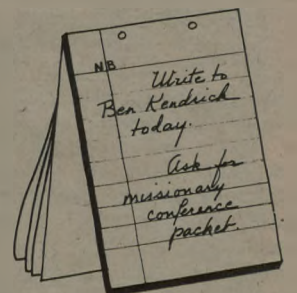 NB
Write to
Ben Kendrick
today.
Ask for
missionary
conference
packet.